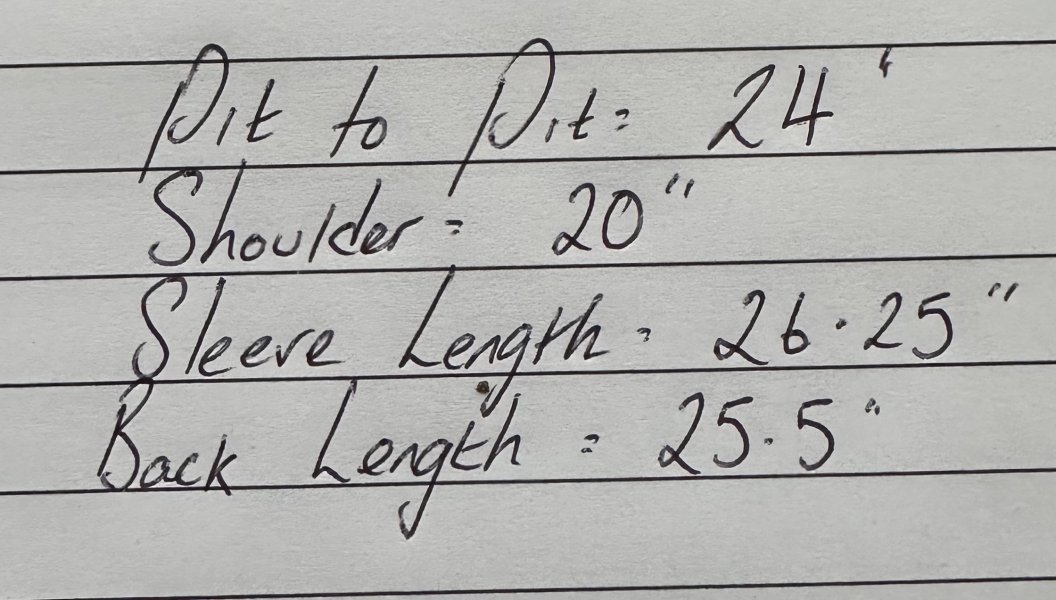 Pit to Pit: 24"
Shoulder: 20"
Sleeve Length: 26.25"
Back Length: 25.5"